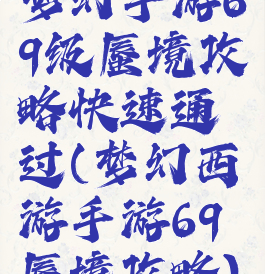 梦幻手游6
9级蜃境攻
略快速通
过(梦幻西
游手游69
蜃境攻略)